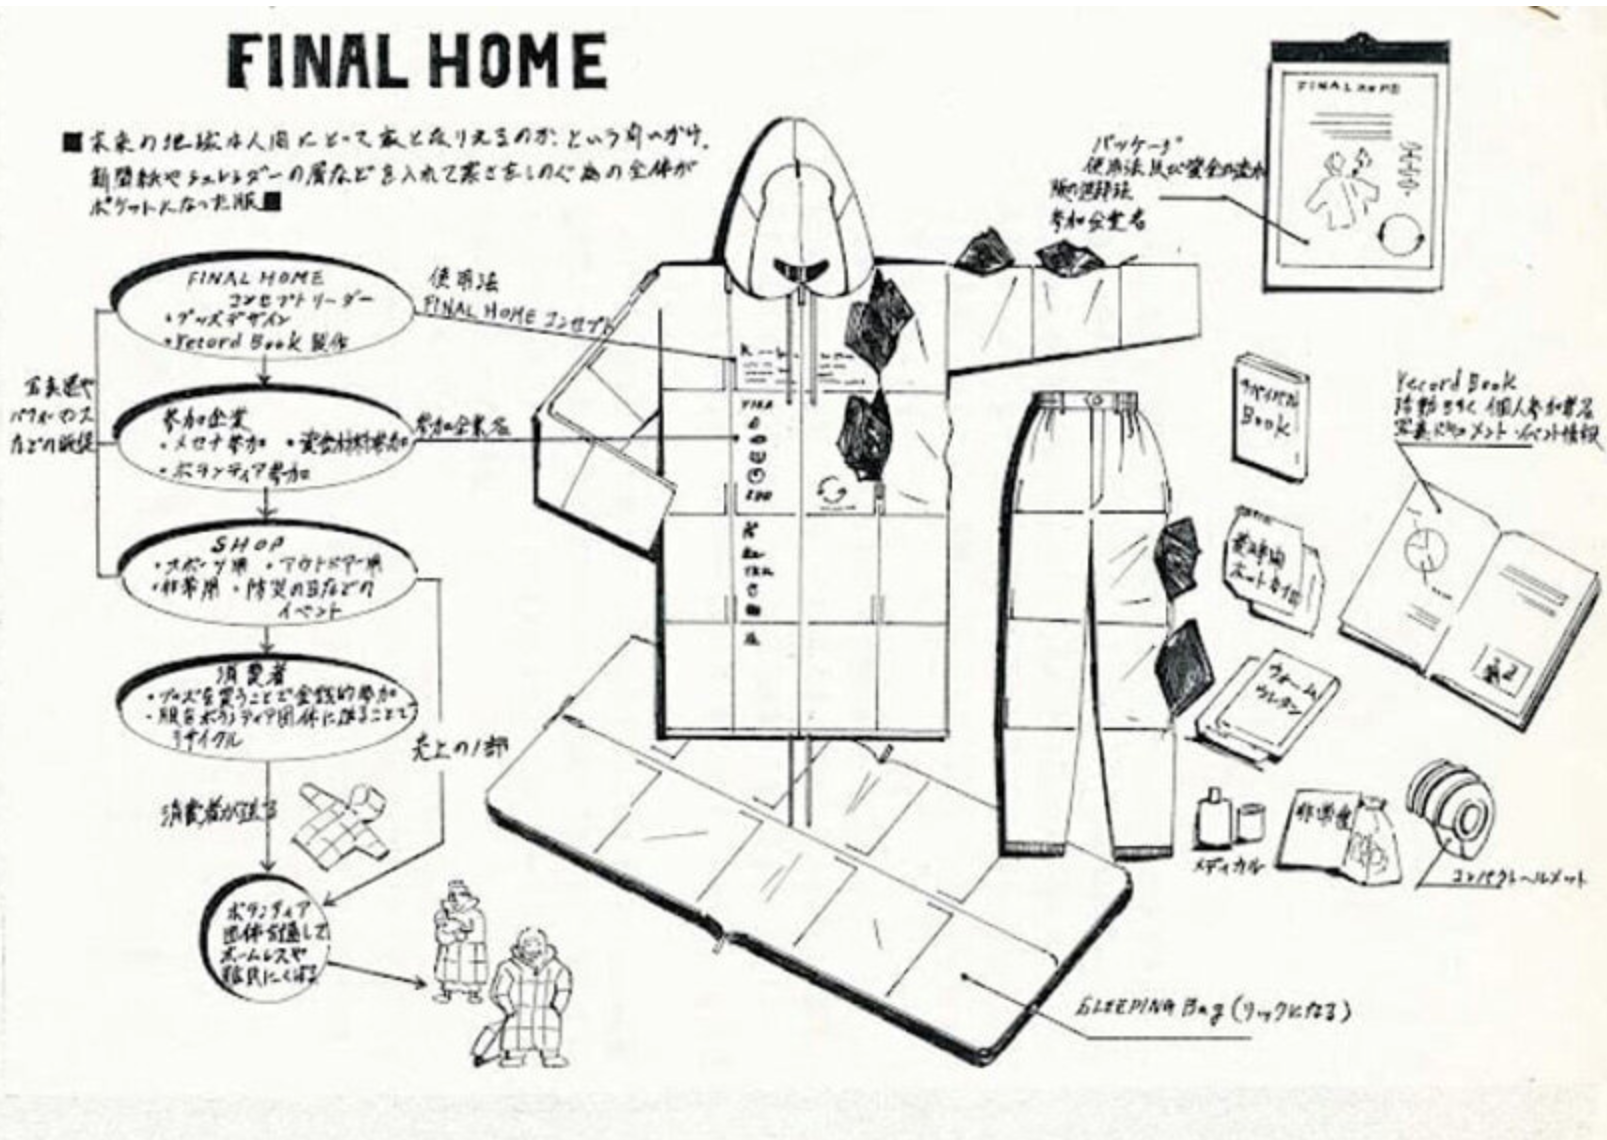 FINAL HOME
■未来の地球は人間にとって家となりえるのか、という問いかけ。
新聞紙やシュレッダーの屑などを入れて寒さをしのぐ為の全体が
ポケットになった服■
FINAL HOME
コンセプトリーダー
・グッズデザイン
・record Book 製作
使用法
FINAL HOME コンセプト
写真展や
パフォーマンス
などの
参加企業
・メセナ参加
・資金材料参加
・ボランティア参加
参加企業名
SHOP
・スポーツ用 ・アウトドアー用
・非常用 ・防災の日などの
イベント
消費者
・グッズを買うことで金銭的参加
・服をボランティア団体に送ることで
リサイクル
売上の1部
消費者が送る
ボランティア
団体を通して
ホームレスや
難民にくばる
パッケージ
使用法及び資金の流れ
服の
参加企業名
FINAL HOME
サバイバル
Book
record Book
活動 個人参加者名
写真ドキュメント イベント情報
ウォーム
ウレタン
メディカル
非常食
コンパクトヘルメット
SLEEPING Bag (リックになる)